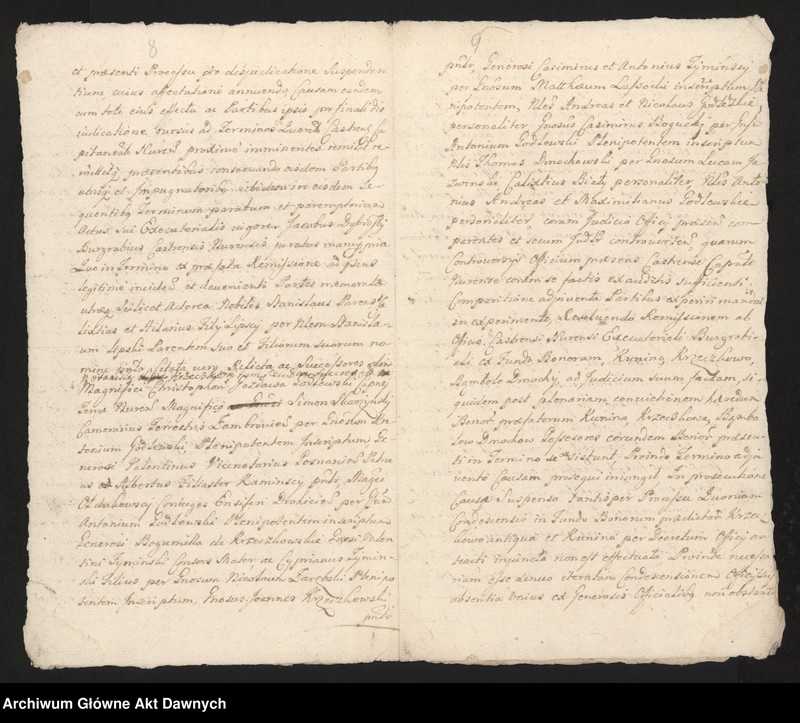 8
et præsenti Processu pro disjudicatione Suspenden
tium cuius affectationi annuendo Causam eandem
cum toto eius effectu ac Partibus ipsis pro finali
judicatione rursus ad Terminos Castren Ca
pitaneal Nuren proxime imminentes remisit re
mittitq præsentibus conservando eisdem Partibq
utriq et Impugnatoribq ibidem in eisdem se
quentibq Terminum paratum et peremptorium
Actus Sui Executorialis vigore Jacobus
Burgrabius Castrensis Nurensis juratus
Quo in Termino ex præfata Remissione ad præns
legitime inciden et devenienti Partes memoratæ
utræq scilicet Actorea Nobiles Stanislaus Parens
et Hilarius Filij Lipscij per Nlem Stanisla
um Lipski Parentem Suo et Filiorum suorum no
mine Citata vero Relicta ac Successores olim
Magnifici Christophori
Terræ Nuren Magnifico Simon Skarzynski
Camerarius Terrestris Zambrovien per Gnosum An
tonium Godlewski Plenipotentem Inscriptum Ge
nerosi Valentinus Vicenotarius Posnanien
Albertus Fillaster Kaminscy pntr Magci
Ołdakowscy Coniuges Ensiferi Drohicien per Gnm
Antonium Godlewski Plenipotentem inscriptum
Generosi Bogumilla de Krzeczkowskie Gnosi Valen
tini Tyminski Consors Mater ac Cyprianus Tymin
ski Filius per Gnosum Nicolaum Zarębski Plenipo
tentem Inscriptum, Gnosus Joannes Krzeczkowski
pntr
9
pntr, Generosi Casimirus et Antonius Tyminscij
per Gnosum Matthæum inscriptum Ple
nipotentem, Nles Andreas et Nicolaus Godlewskie
personaliter Gnosus Casimirus Bogucki per
Antonium Godlewski Plenipotentem inscriptum
Nlis Thomas Dmochowski per Gnosum Lucam Ja
Calixtus Biały personaliter, Nles Anto
nius Andreas et Maximilianus Godlewskie
personaliter coram Judicio Officij præsen com
parentes et secum Judlr controverten quarum
Controversijs Officium præsens Castrense Captle
Nurense coram se factis exauditis sufficienti
Comparitione adinventa Partibus experiri mandat
in experimento, Revolvendo Remissionem ab
Officio Castrensi Nurensi Executoriali Burgrabi
ali ex Fundo Bonorum, Kunino, Krzeczkowo,
Stembowo Dmochy, ad Judicium suum factam, si
quidem post plenariam convictionem hæredum
Bonor præfatorum Kunina, Krzeczkowa, Stembo
wo Dmochow Possessores eorundem Bonor præsen
ti in Termino se sistunt, Proinde Termino adin
vento Causam prosequi iniungit In prosecutione
Causæ Suspenso tantisper Processu Quoniam
Condescensio in Fundo Bonorum prædictor Krzecz
kowo antiqua et Kunino per Decretum Officij an
teacti iniuncta non est effectuata Perinde necessa
riam esse denuo iteratam Condescensionem Officij
absentia Unius ex Generosis Officialibq non obstante
Archiwum Główne Akt Dawnych